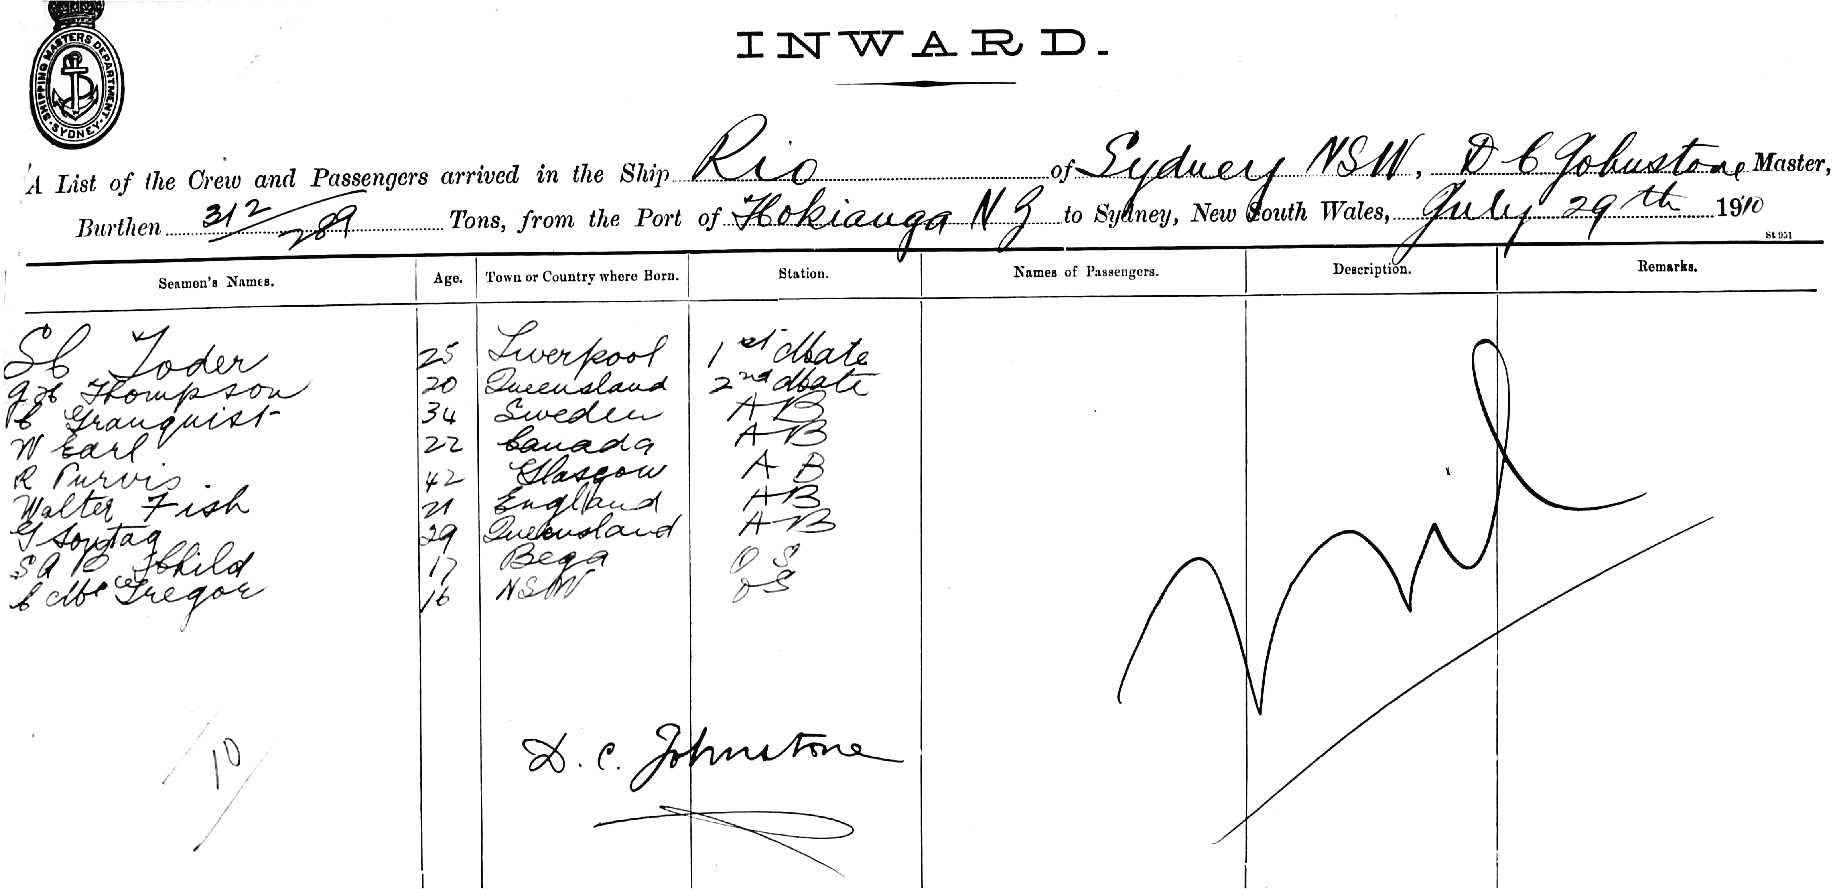 SHIPPING MASTERS DEPARTMENT
SYDNEY
INWARD.
A List of the Crew and Passengers arrived in the Ship Rio of Sydney NSW, D C Johnstone Master,
Burthen 312/289 Tons, from the Port of Hokianga N Z to Sydney, New South Wales, July 29th 1910
St 951
Seamen's Names. Age. Town or Country where Born. Station. Names of Passengers. Description. Remarks.
Toder 25 Liverpool 1st Mate
Thompson 20 Queensland 2nd Mate
C Granquist 34 Sweden A B
W Earl 22 Canada A B
R Purvis 42 Glasgow A B
Walter Fish 21 England A B
G Sontag 29 Queensland A B
S A 17 Bega O S
C McGregor 16 NSW O S
nil
10
D. C. Johnstone